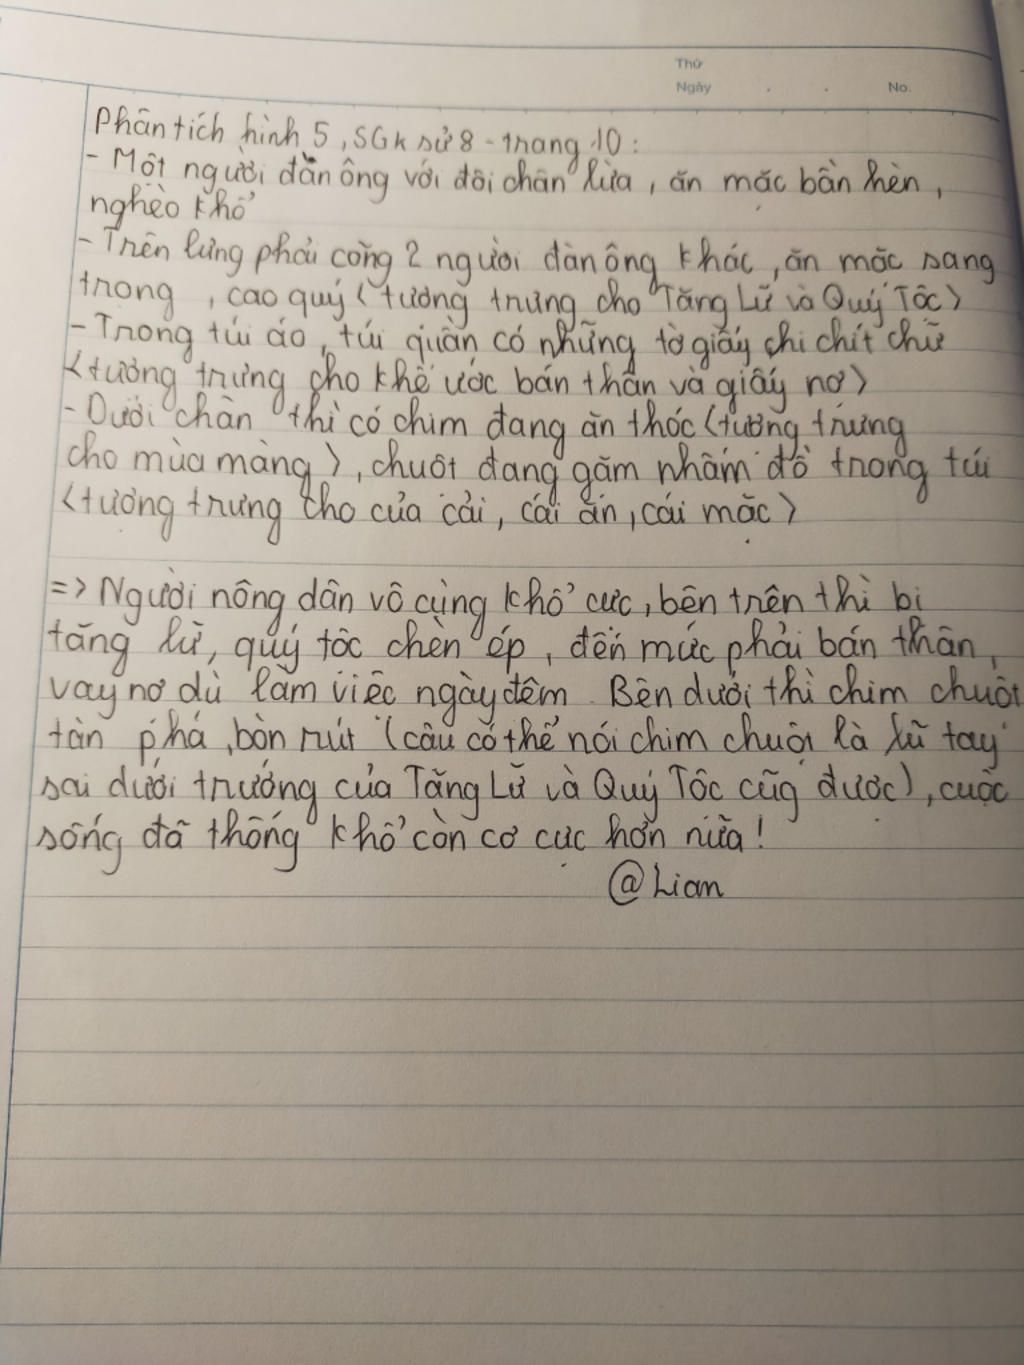 Thứ
Ngày . . No.
Phân tích hình 5, SGK sử 8 - trang 10:
- Một người đàn ông với đôi chân lừa, ăn mặc bần hèn,
nghèo khổ
- Trên lưng phải cõng 2 người đàn ông khác, ăn mặc sang
trọng, cao quý (tượng trưng cho Tăng Lữ và Quý Tộc)
- Trong túi áo, túi quần có những tờ giấy chi chít chữ
(tượng trưng cho khế ước bán thân và giấy nợ)
- Dưới chân thì có chim đang ăn thóc (tượng trưng
cho mùa màng), chuột đang gặm nhấm đồ trong túi
(tượng trưng cho của cải, cái ăn, cái mặc)
=> Người nông dân vô cùng khổ cực, bên trên thì bị
tăng lữ, quý tộc chèn ép, đến mức phải bán thân,
vay nợ dù làm việc ngày đêm. Bên dưới thì chim chuột
tàn phá, bòn rút (cậu có thể nói chim chuột là lũ tay
sai dưới trướng của Tăng Lữ và Quý Tộc cũg được), cuộc
sống đã thống khổ còn cơ cực hơn nữa!
@Lian